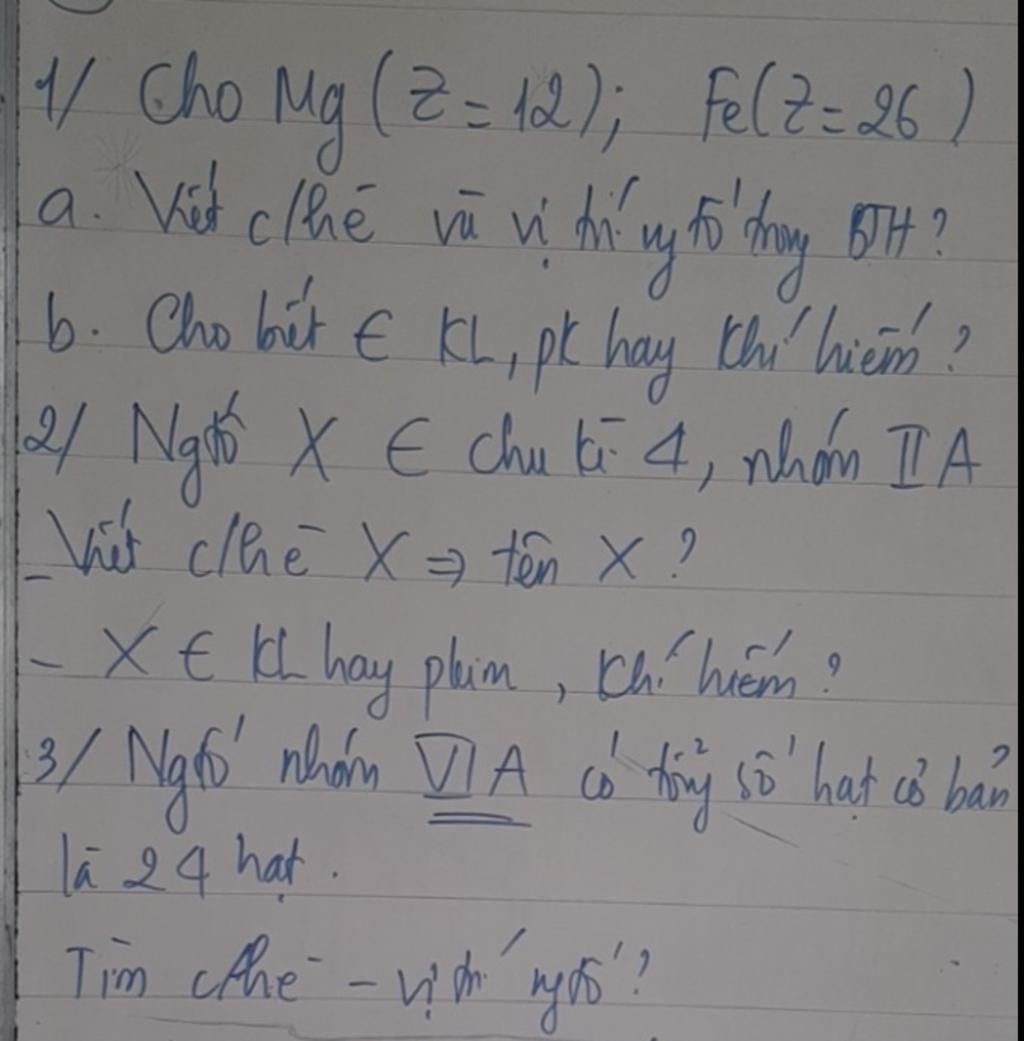 1/ Cho Mg (Z = 12); Fe (Z = 26)
a. Viết c/hē và vị trí ngtố trong BTH?
b. Cho biết ∈ KL, pk hay khí hiếm?
2/ Ngtố X ∈ chu kì 4, nhóm II A
- Viết c/hē X ⇒ tên X?
- X ∈ KL hay phim, khí hiếm?
3/ Ngtố nhóm VI A có tổng số hạt cơ bản
là 24 hạt.
Tìm c/hē - vị trí ngtố?